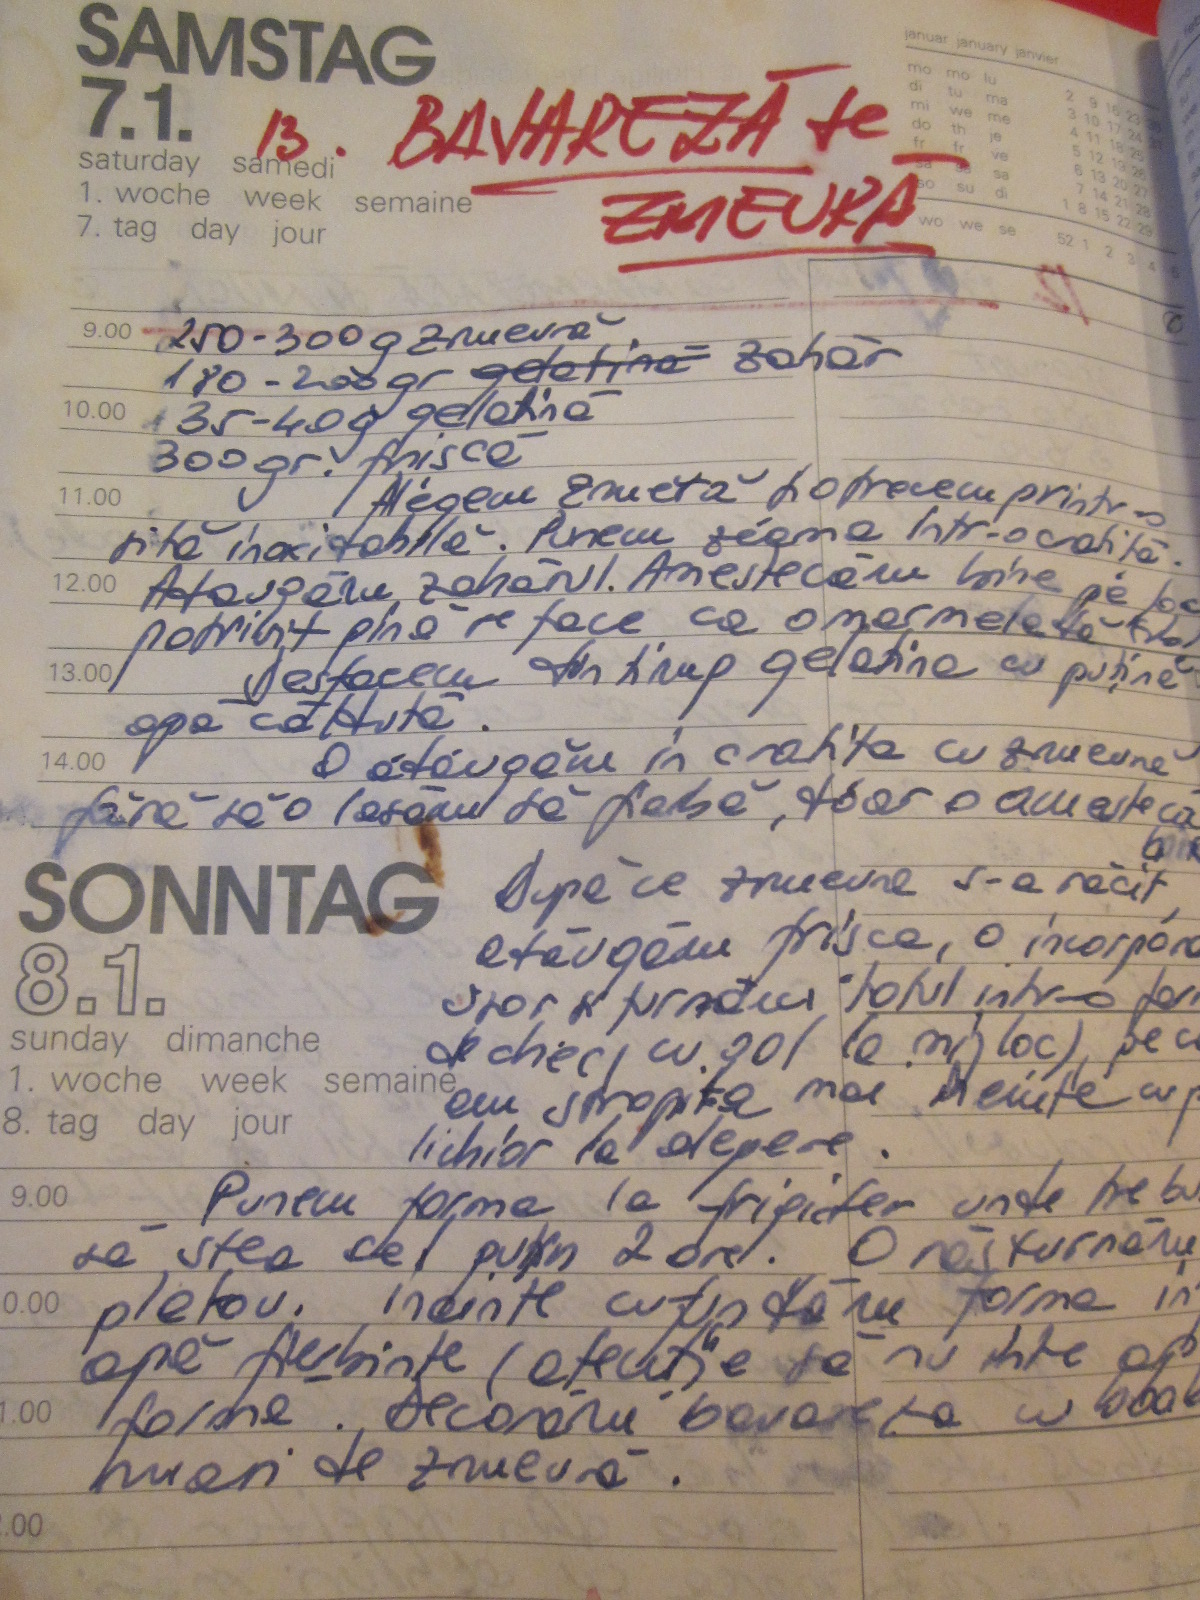 SAMSTAG
7.1.
saturday samedi
1. woche week semaine
7. tag day jour
januar january janvier
mo mo lu 2 9 16 23
di tu ma 3 10 17 24
mi we me 4 11 18 25
do th je 5 12 19 26
fr fr ve 6 13 20 27
sa sa sa 7 14 21 28
so su di 1 8 15 22 29
wo we se 52 1 2 3 4
13. BAVAREZĂ de
ZMEURĂ
12
9.00 250-300g zmeură
180-200gr gelatină zahăr
10.00 35-40g gelatină
300gr. frișcă
11.00 Alegem zmeură și o trecem printr-o
sită inoxidabilă. Punem zeama într-o cratiță.
12.00 Adăugăm zahărul. Amestecăm bine pe foc
potrivit pînă se face ca o marmeladă
13.00 Desfacem din timp gelatina cu puțină
apă călduță.
14.00 O adăugăm în cratița cu zmeură
fără să o lasăm să fiarbă, doar o amestecă
SONNTAG
8.1.
sunday dimanche
1. woche week semaine
8. tag day jour
După ce zmeura s-a răcit,
adăugăm frișca, o
ușor și turnăm totul într-o
de chec, cu gol la mijloc), pe
am stropit-o mai înainte cu
lichior la alegere.
9.00 Punem forma la frigider unde
să stea cel puțin 2 ore. O răsturnăm
platou. înainte cufundăm forma în
apă fierbinte (atenție să nu intre
formă. Decorăm bavareza cu
de zmeură.